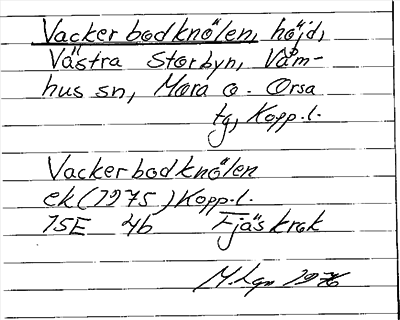 Vackerbodknölen, höjd,
Västra Storbyn, Våm-
hus sn, Mora o. Orsa
tg, Kopp.l.
Vackerbodknölen
ek (1975) Kopp.l.
15E 4b Fjäskrok
1976